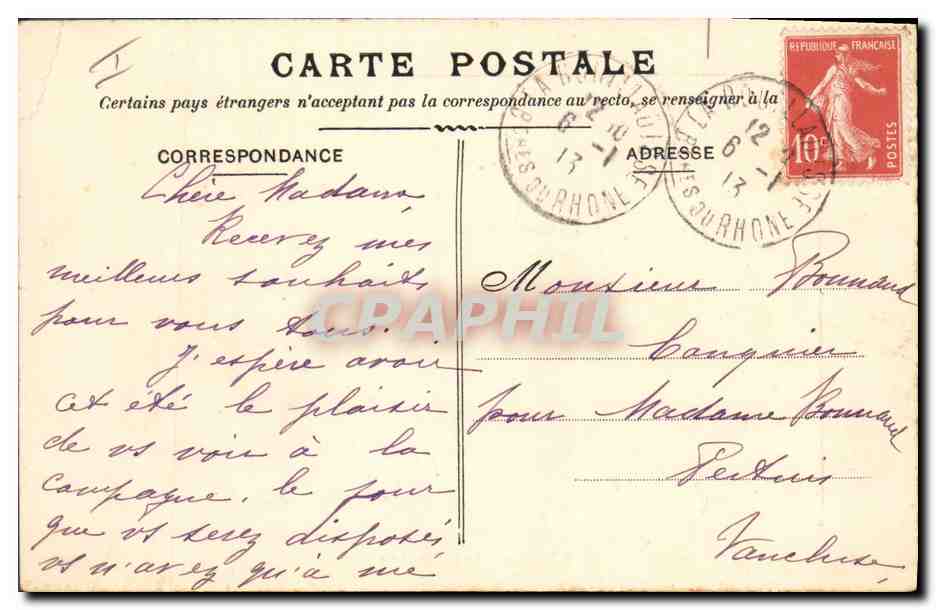 CARTE POSTALE
Certains pays étrangers n'acceptant pas la correspondance au recto, se renseigner à la
CORRESPONDANCE
ADRESSE
REPUBLIQUE FRANÇAISE
10c
POSTES
12
6 -1
13
DU RHONE
12
6 -1
13
DU RHONE
CPAPHIL
Chère Madame,
Recevez mes
meilleurs souhaits
pour vous tous.
J'espère avoir
cet été le plaisir
de vs voir à la
campagne. le jour
que vs serez disposés
vs n'avez qu'à me
Monsieur Bonnaud
Banquier
pour Madame Bonnaud
Pertuis
Vaucluse,